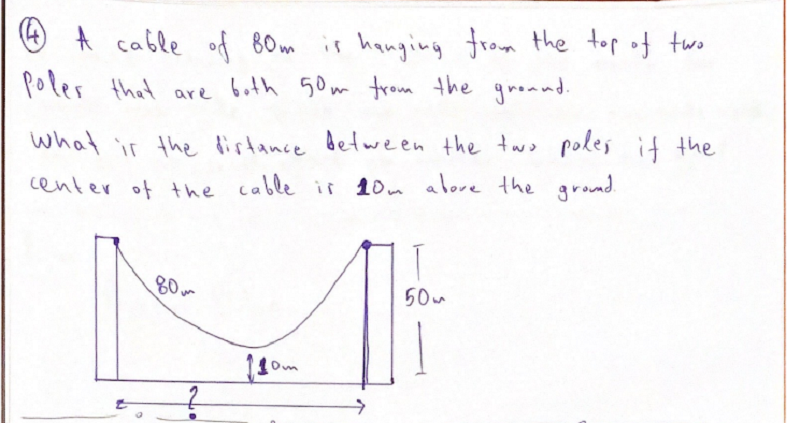 ④ A cable of 80m is hanging from the top of two
Poles that are both 50m from the ground.
What is the distance between the two poles if the
center of the cable is 10m above the ground.
80m
50m
10m
?